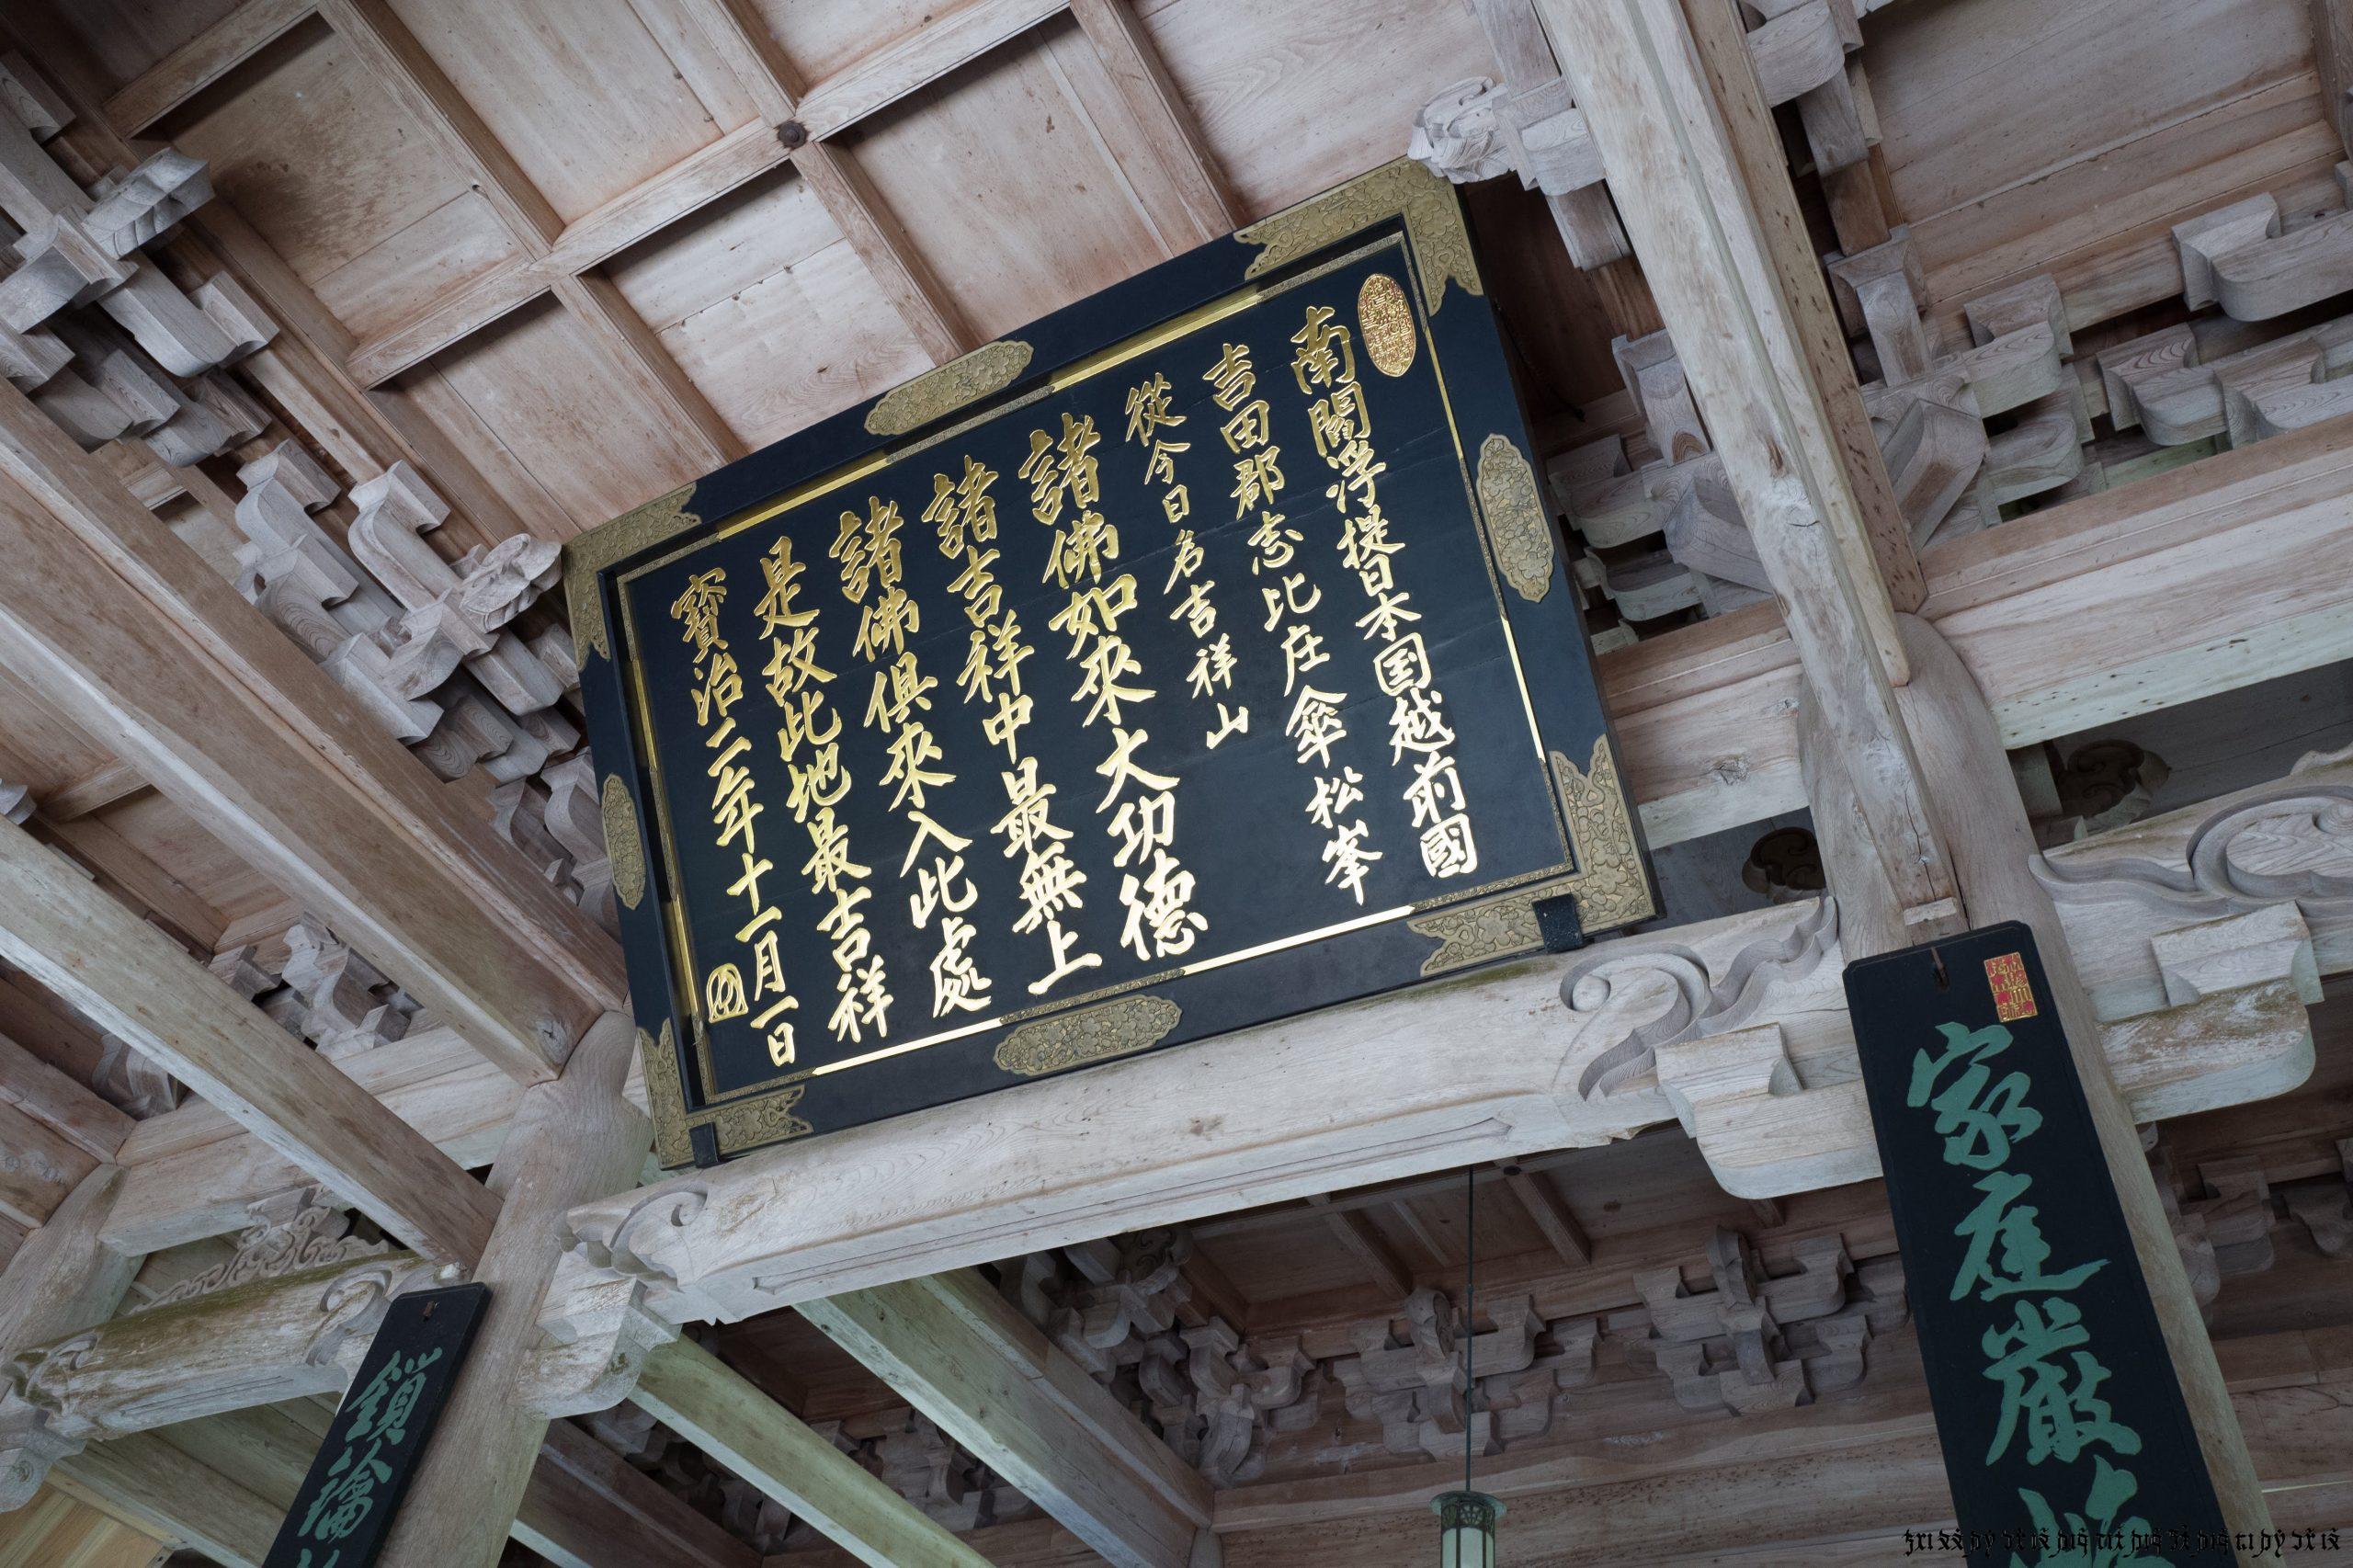 南閻浮提日本国越前國
吉田郡志比庄傘松峯
從今日名吉祥山
諸佛如來大功德
諸吉祥中最無上
諸佛俱來入此處
是故此地最吉祥
寶治二年十一月一日
家庭厳
鎖鑰